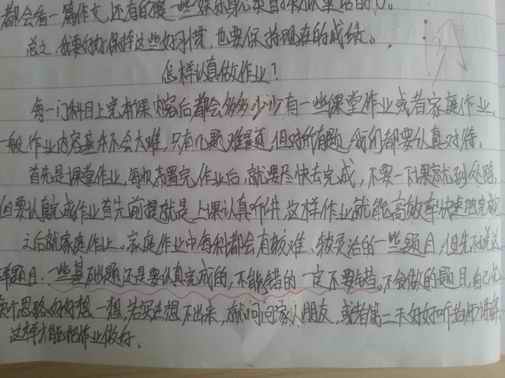 都会看一篇作文,还有的
总之,我要好好保持这些好习惯,也要保持现在的成绩。
怎样认真做作业?
每一门科目上完本课内容后都会多多少少有一些课堂作业或者家庭作业,
一般作业内容基本不会太难,只有几题难题,但对所有题,我们都要认真对待。
首先是课堂作业,每次布置完作业后,就要尽快去完成,不要一下课就到处跑,
但要认真完成作业首先前提就是上课认真听讲,这样作业就能高效率快速地完成
之后就家庭作业。家庭作业中每科都会有较难、较灵活的一些题目,但先不说这
难题目,一些基础题还是要认真完成的,不能错的一定不要错,不会做的题目,自己
思路好好想一想,若实在想不出来,就问问家人朋友,或者第二天好好听老师讲解
这样才能把作业做好。